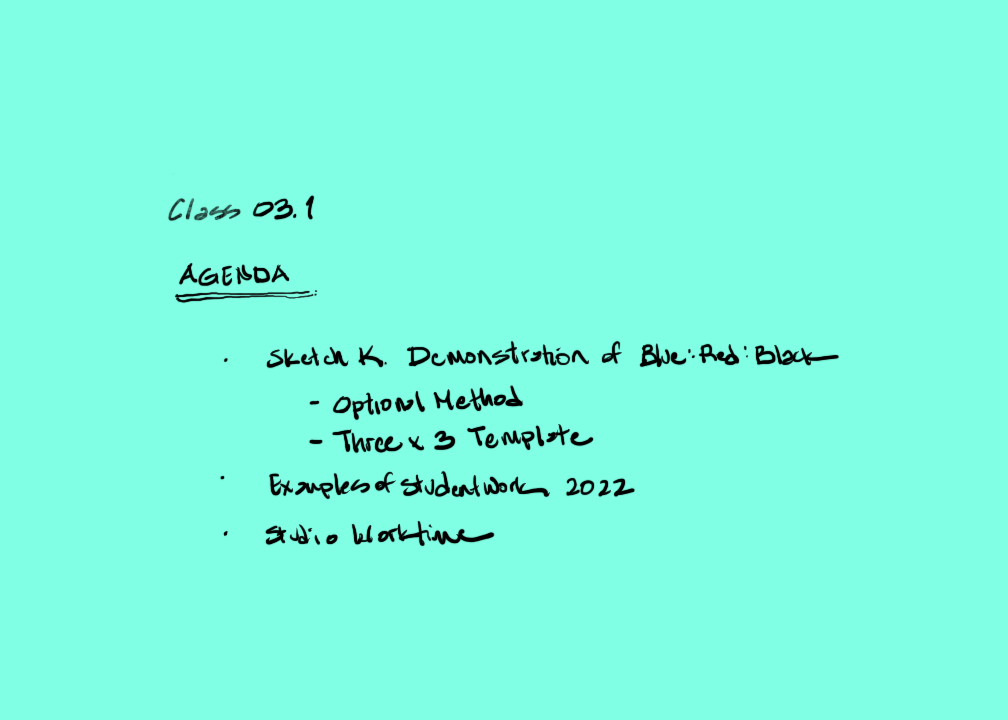 Class 03.1
AGENDA
· Sketch K. Demonstration of Blue:Red:Black
- Optional Method
- Three x 3 Template
· Examples of Student Work 2022
· Studio Worktime